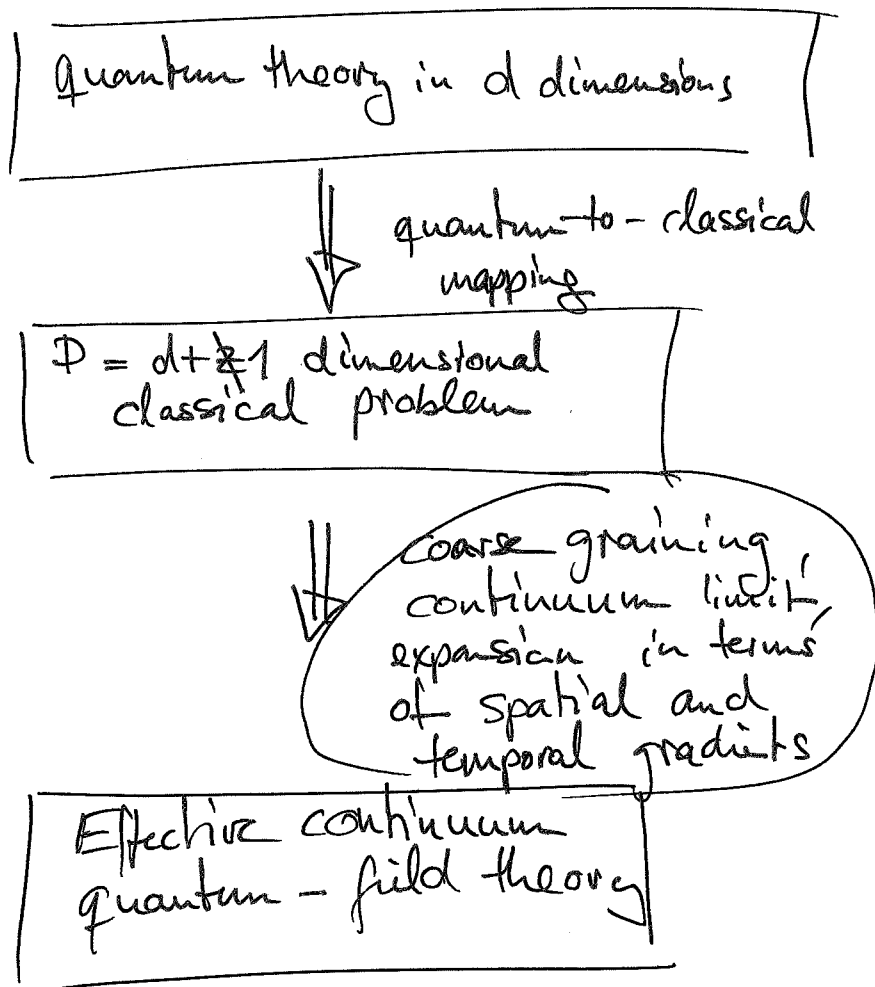 quantum theory in d dimensions
quantum-to-classical
mapping
D = d+1 dimensional
classical problem
coarse graining,
continuum limit,
expansion in terms
of spatial and
temporal gradients
Effective continuum
quantum-field theory